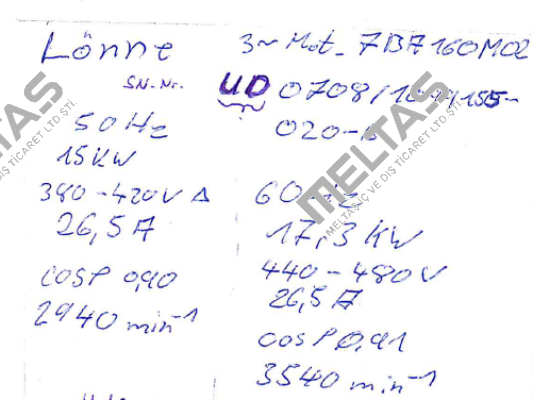 Lönne 3~ Mot. 7BA160M02
SN-Nr. UD 0708/
020-
50 Hz
15 KW
380-420V Δ
26,5 A
cosP 0,90
2940 min-1
60 Hz
17,3 KW
440-480V
26,5 A
cosP 0,91
3540 min-1
MELTAS
MELTAS İÇ VE DIŞ TİCARET LTD.ŞTİ.
MELTAS
DIŞ TİCARET LTD.ŞTİ.